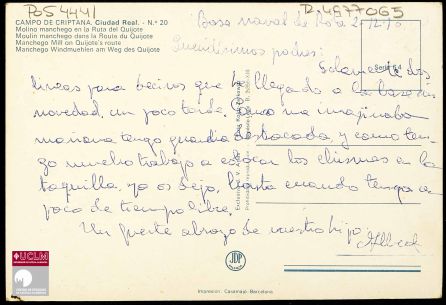 POS 4441
D-4577065
CAMPO DE CRIPTANA. Ciudad Real. - N.° 20
Molino manchego en la Ruta del Quijote
Moulin manchego dans la Route du Quijote
Manchego Mill on Quijote's route
Manchego Windmuehlen am Weg des Quijote
Base naval de Rota
Queridísimos padres:
Solamente dos
líneas para deciros que he llegado a la base sin
novedad, un poco tarde, como me imajinaba
mañana tengo guardia y como ten-
go mucho trabajo a colocar los chismes en la
taquilla, ya os dejo, hasta cuando tenga un
poco de tiempo libre.
Un fuerte abrazo de vuestro hijo
UCLM
JDP
Impresión: Casamajó. Barcelona